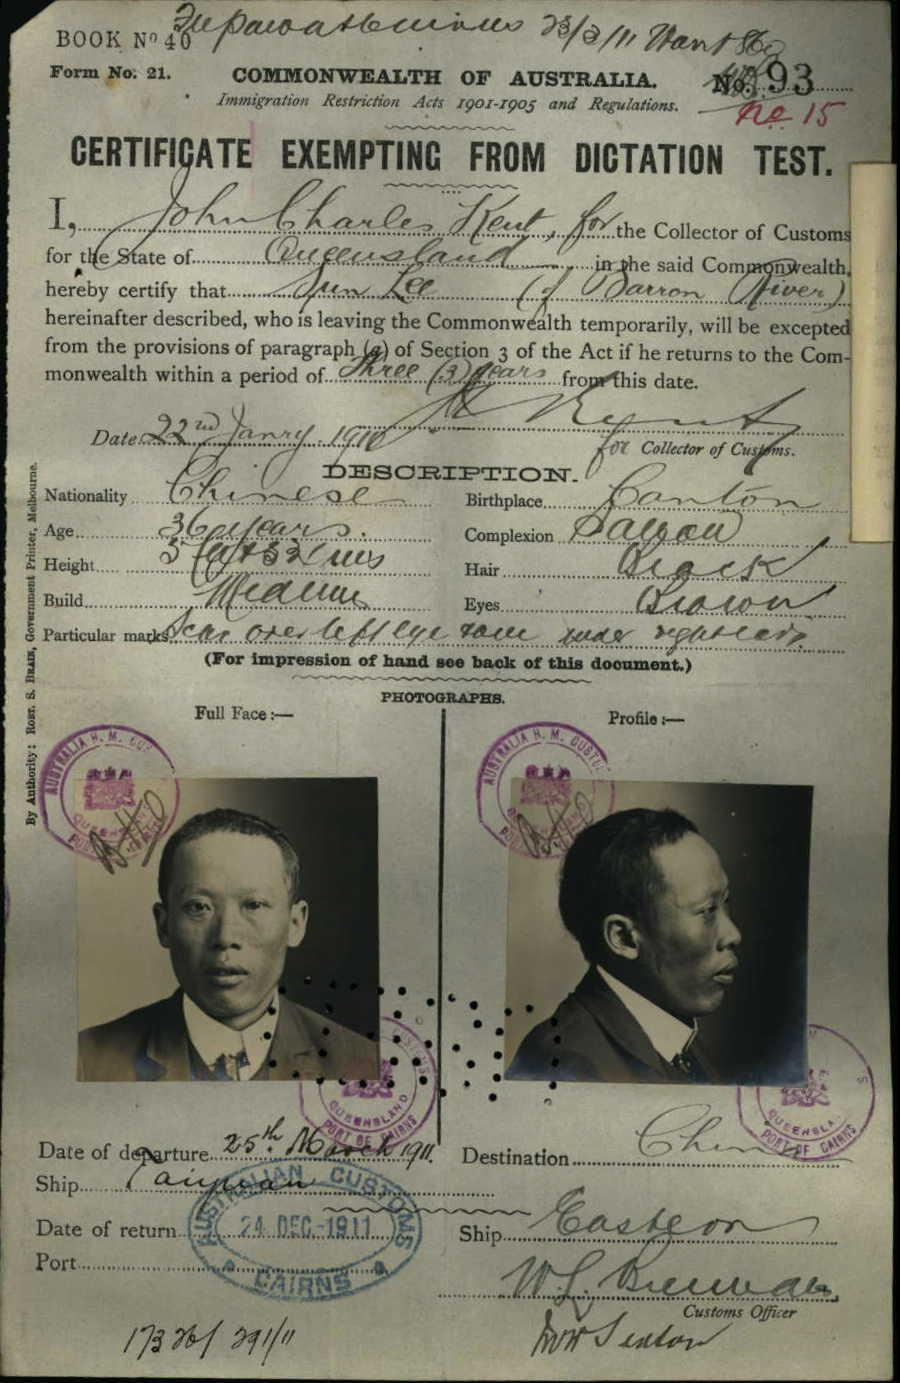 BOOK Nº 40
23/3/11
Form No. 21.
COMMONWEALTH OF AUSTRALIA.
No. 93
Immigration Restriction Acts 1901-1905 and Regulations.
No 15
CERTIFICATE EXEMPTING FROM DICTATION TEST.
I, John Charles Kent, for the Collector of Customs
for the State of Queensland in the said Commonwealth,
hereby certify that Sun Lee (of Barron River)
hereinafter described, who is leaving the Commonwealth temporarily, will be excepted
from the provisions of paragraph (a) of Section 3 of the Act if he returns to the Com-
monwealth within a period of Three (3) years from this date.
Kent
Date 22nd Janry. 1910
for Collector of Customs.
DESCRIPTION.
Nationality Chinese
Birthplace Canton
Age 36 years.
Complexion
Height 5 ins
Hair Black
Build Medium
Eyes Brown
Particular marks Scar over left eye under right ear.
(For impression of hand see back of this document.)
PHOTOGRAPHS.
Full Face:—
Profile:—
AUSTRALIA H. M. CUS
AUSTRALIA H. M. CUSTO
QUEENSLAND
PORT OF CAIRNS
QUEENSLA
PORT OF CAIRNS
Date of departure 25th March 1911.
Destination China
Ship Taiyuan
Date of return
Ship Eastern
AUSTRALIAN CUSTOMS
24 DEC 1911
CAIRNS
Port
W.L.
Customs Officer
173 291/11
By Authority: ROBT. S. BRAIN, Government Printer, Melbourne.